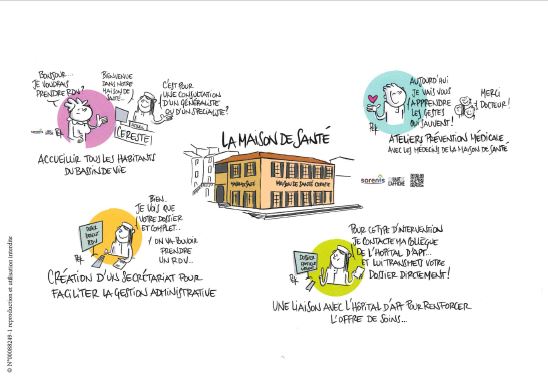 BONJOUR...
JE VOUDRAIS
PRENDRE RDV?
BIENVENUE
DANS NOTRE
MAISON DE
SANTÉ...
C'EST POUR
UNE CONSULTATION
D'UN GÉNÉRALISTE
OU D'UN SPÉCIALISTE?
CERESTE!
ACCUEILLIR TOUS LES HABITANTS
DU BASSIN DE VIE
LA MAISON DE SANTÉ
MAISON DE SANTÉ
AUJOURD'HUI
JE VAIS VOUS
APPRENDRE
LES GESTES
QUI SAUVENT!
MERCI
DOCTEUR!
ATELIERS PRÉVENTION MÉDICALE
AVEC LES MÉDECINS DE LA MAISON DE SANTÉ
sorenis
BIEN...
JE VOIS QUE
VOTRE DOSSIER
ET COMPLET...
ON VA POUVOIR
PRENDRE
UN RDV...
RDV
CRÉATION D'UN SECRÉTARIAT POUR
FACILITER LA GESTION ADMINISTRATIVE
POUR CE TYPE D'INTERVENTION
JE CONTACTE MA COLLÈGUE
DE L'HÔPITAL D'APT...
ET LUI TRANSMETS VOTRE
DOSSIER DIRCTEMENT!
DOSSIER
UNE LIAISON AVEC L'HÔPITAL D'APT POUR RENFORCER
L'OFFRE DE SOINS...
© N°00088249-1 reproduction et utilisation interdite